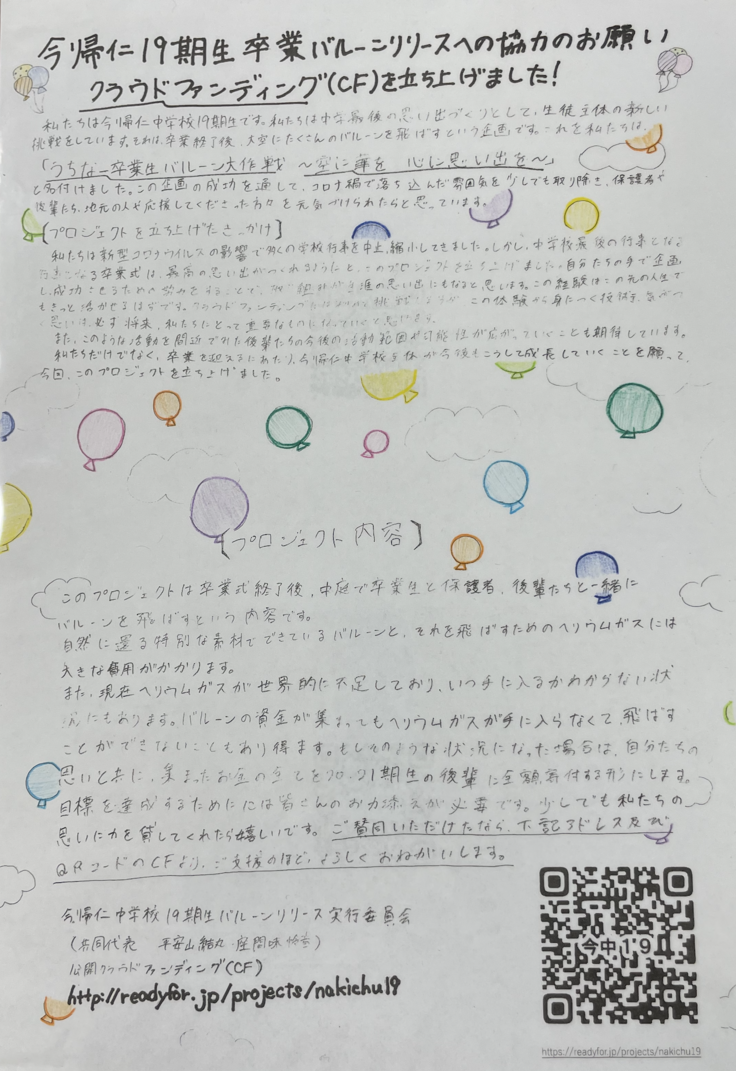 今帰仁19期生卒業バルーンリリースへの協力のお願い
クラウドファンディング(CF)を立ち上げました!
私たちは今帰仁中学校19期生です。私たちは中学最後の思い出づくりとして、生徒主体の新しい
挑戦をしています。それは、卒業終了後、大空にたくさんのバルーンを飛ばすという企画です。これを私たちは、
「うちなー卒業生バルーン大作戦 〜空に華を 心に思い出を〜」
と名付けました。この企画の成功を通して、コロナ禍で落ち込んだ雰囲気を少しでも取り除き、保護者や
後輩たち、地元の人や応援してくださった方々を元気づけられたらと思っています。
[プロジェクトを立ち上げたきっかけ]
私たちは新型コロナウイルスの影響で多くの学校行事を中止、縮小してきました。しかし、中学校最後の行事となる
卒業式は、最高の思い出がつくれるようにと、このプロジェクトを立ち上げました。自分たちの手で企画
し、成功させるための
思い出にもなると思います。この経験はこの先の人生で
もきっと活かせるはずです。クラウドファンディング
この体験から身につく技術
必ず将来、私たちにとって重要なものに
また、このような活動を間近でみた後輩たちの今後の活動範囲や可能性が広がっていくことも期待しています。
私たちだけでなく、卒業を迎えるにあたり、今帰仁中学校全体が今後もこうして成長していくことを願って、
今回、このプロジェクトを立ち上げました。
[プロジェクト内容]
このプロジェクトは卒業式終了後、中庭で卒業生と保護者、後輩たちと一緒に
バルーンを飛ばすという内容です。
自然に還る特別な素材でできているバルーンと、それを飛ばすためのヘリウムガスには
大きな費用がかかります。
また、現在ヘリウムガスが世界的に不足しており、いつ手に入るかわからない状
況にもあります。バルーンの資金が集まってもヘリウムガスが手に入らなくて、飛ばす
ことができないこともあり得ます。もしそのような状況になった場合は、自分たちの
思いと共に、集まったお金の全てを20・21期生の後輩に全額寄付する形にします。
目標を達成するためにには皆さんのお力添えが必要です。少しでも私たちの
思いに力を貸してくれたら嬉しいです。ご賛同いただけたなら、下記アドレス及び
QRコードのCFより、ご支援のほど、よろしくおねがいします。
今帰仁中学校19期生バルーンリリース実行委員会
(共同代表 平安山結丸・座間味
公開クラウドファンディング(CF)
http://readyfor.jp/projects/nakichu19
今中19
https://readyfor.jp/projects/nakichu19